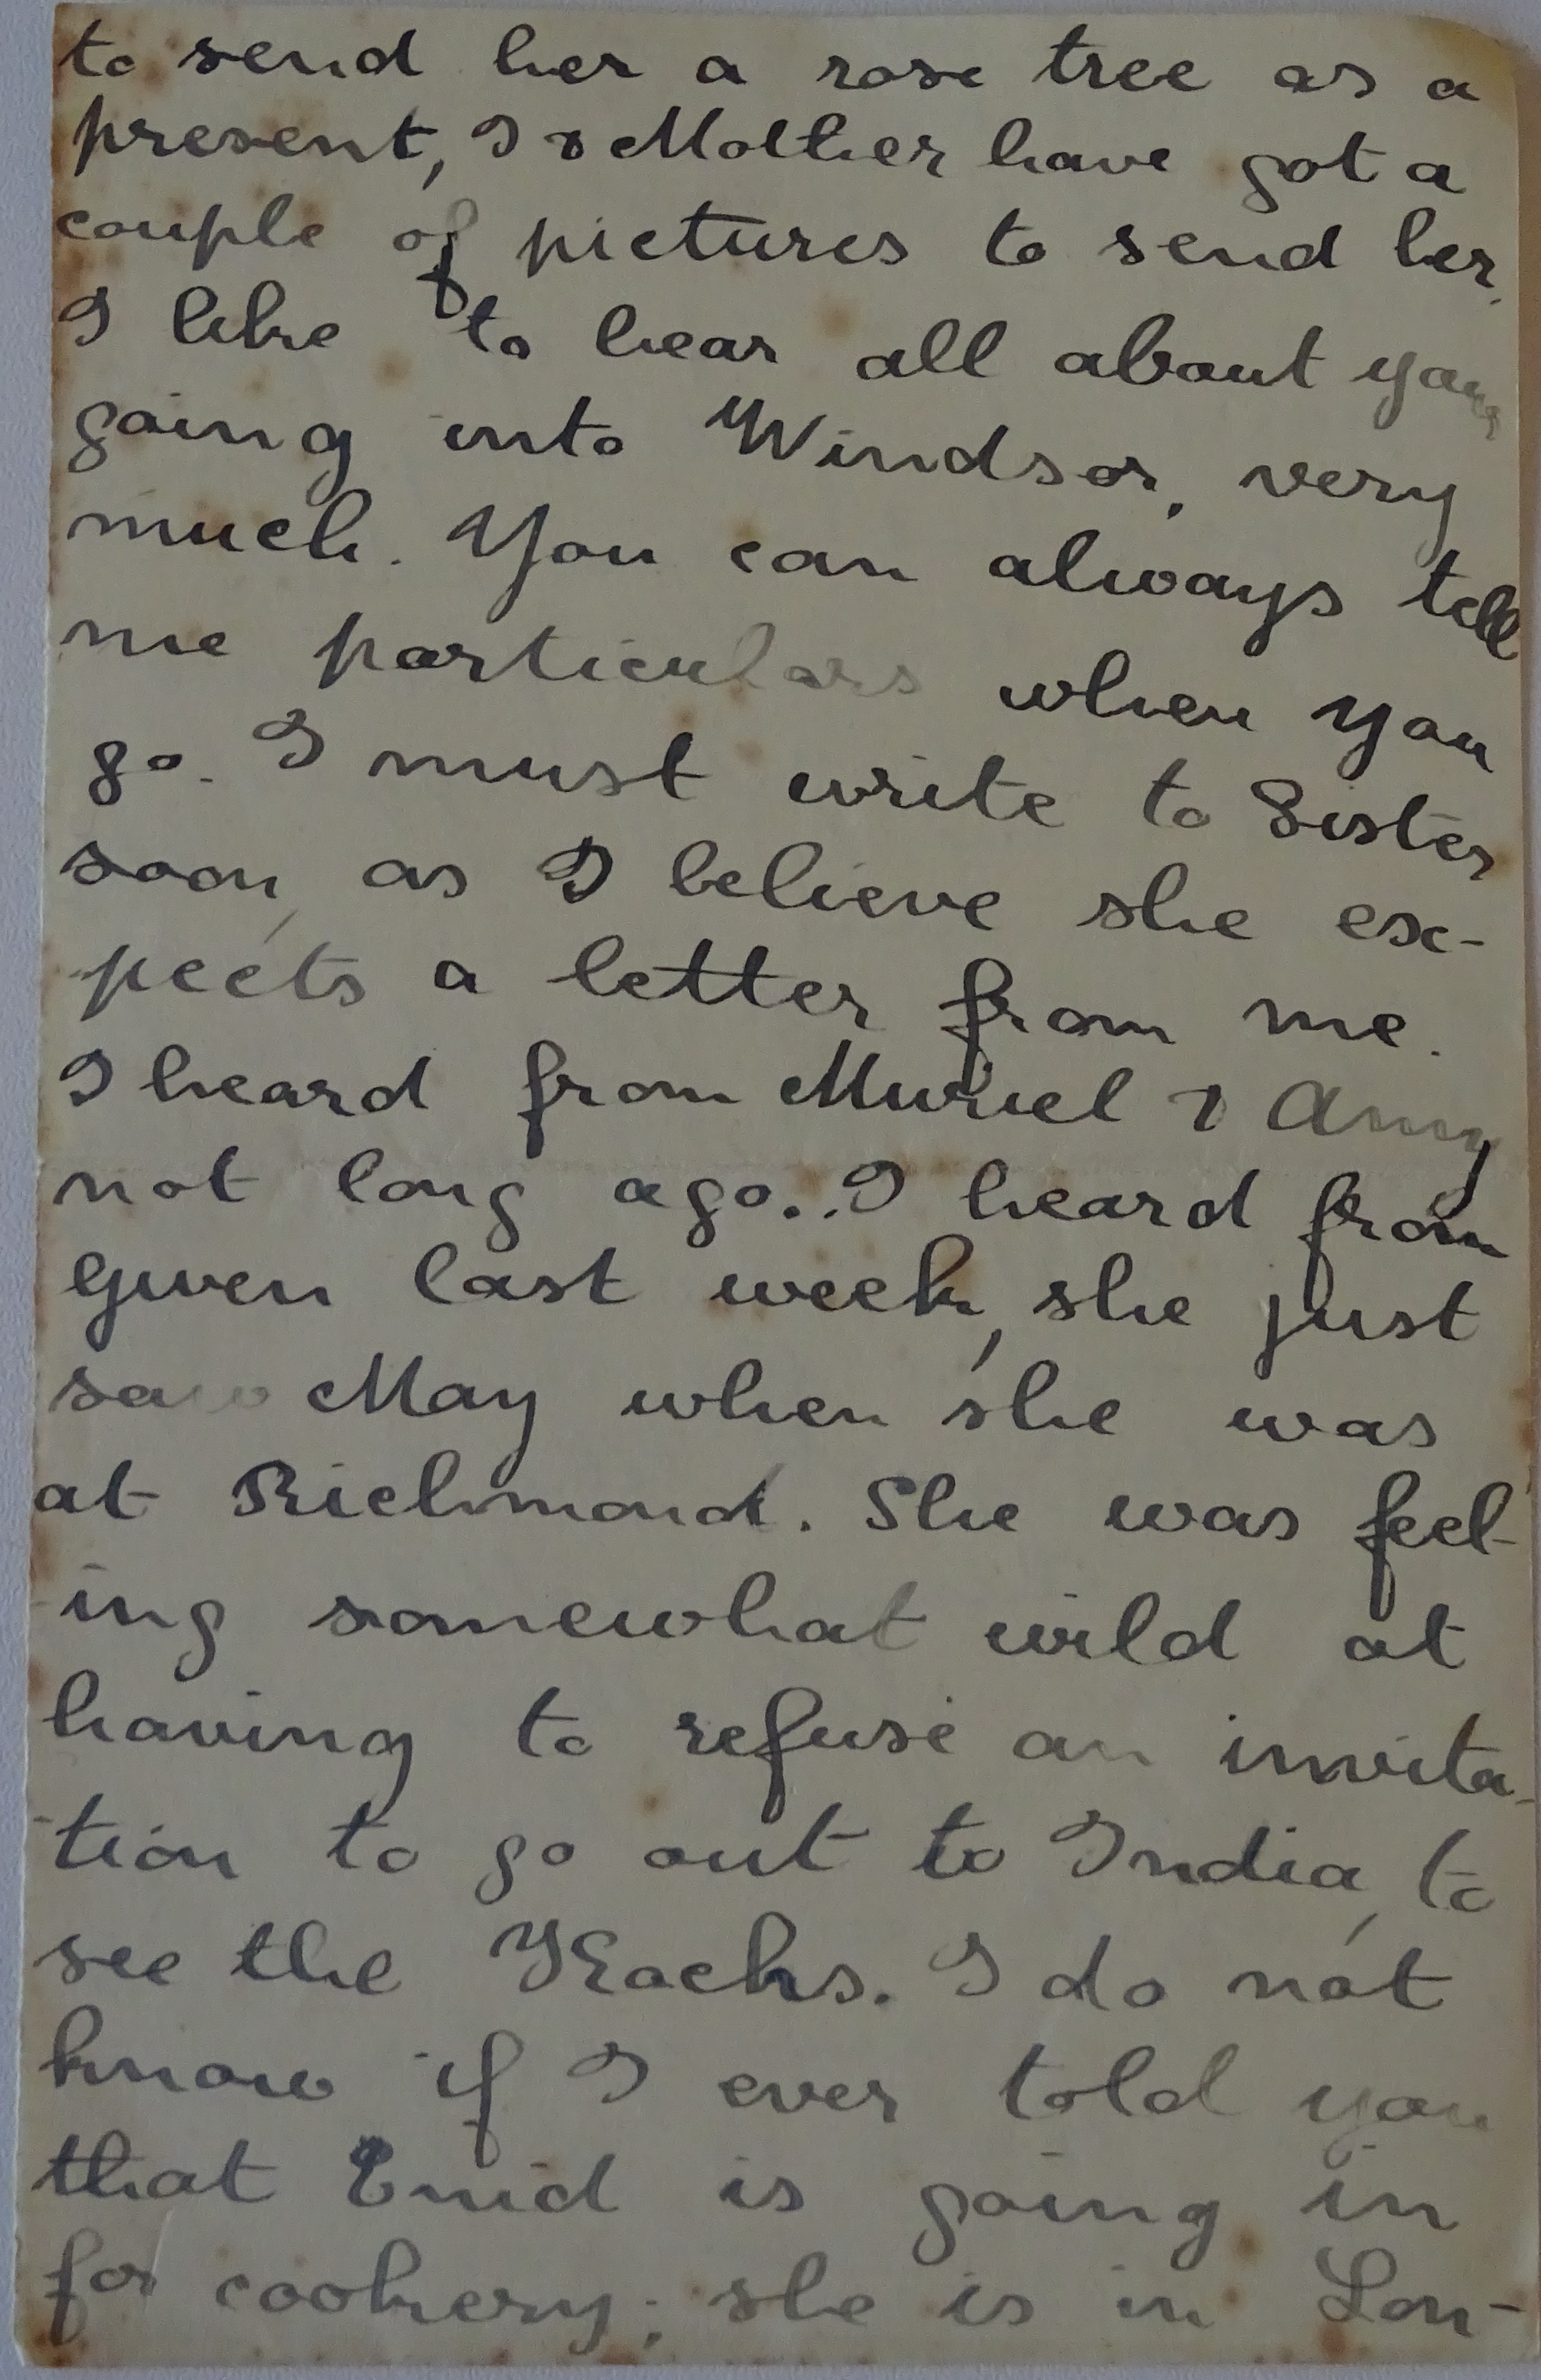 to send her a rose tree as a
present, I & Mother have got a
couple of pictures to send her.
I like to hear all about your
going into Windsor, very
much. You can always tell
me particulars when you
go. I must write to Sister
soon, as I believe she ex-
pects a letter from me.
I heard from Muriel & Amy
not long ago. I heard from
Gwen last week, she just
saw May when she was
at Richmond. She was feel-
ing somewhat wild at
having to refuse an invita-
tion to go out to India, to
see the . I do not
know if I ever told you
that Enid is going in
for cookery; she is in Lon-